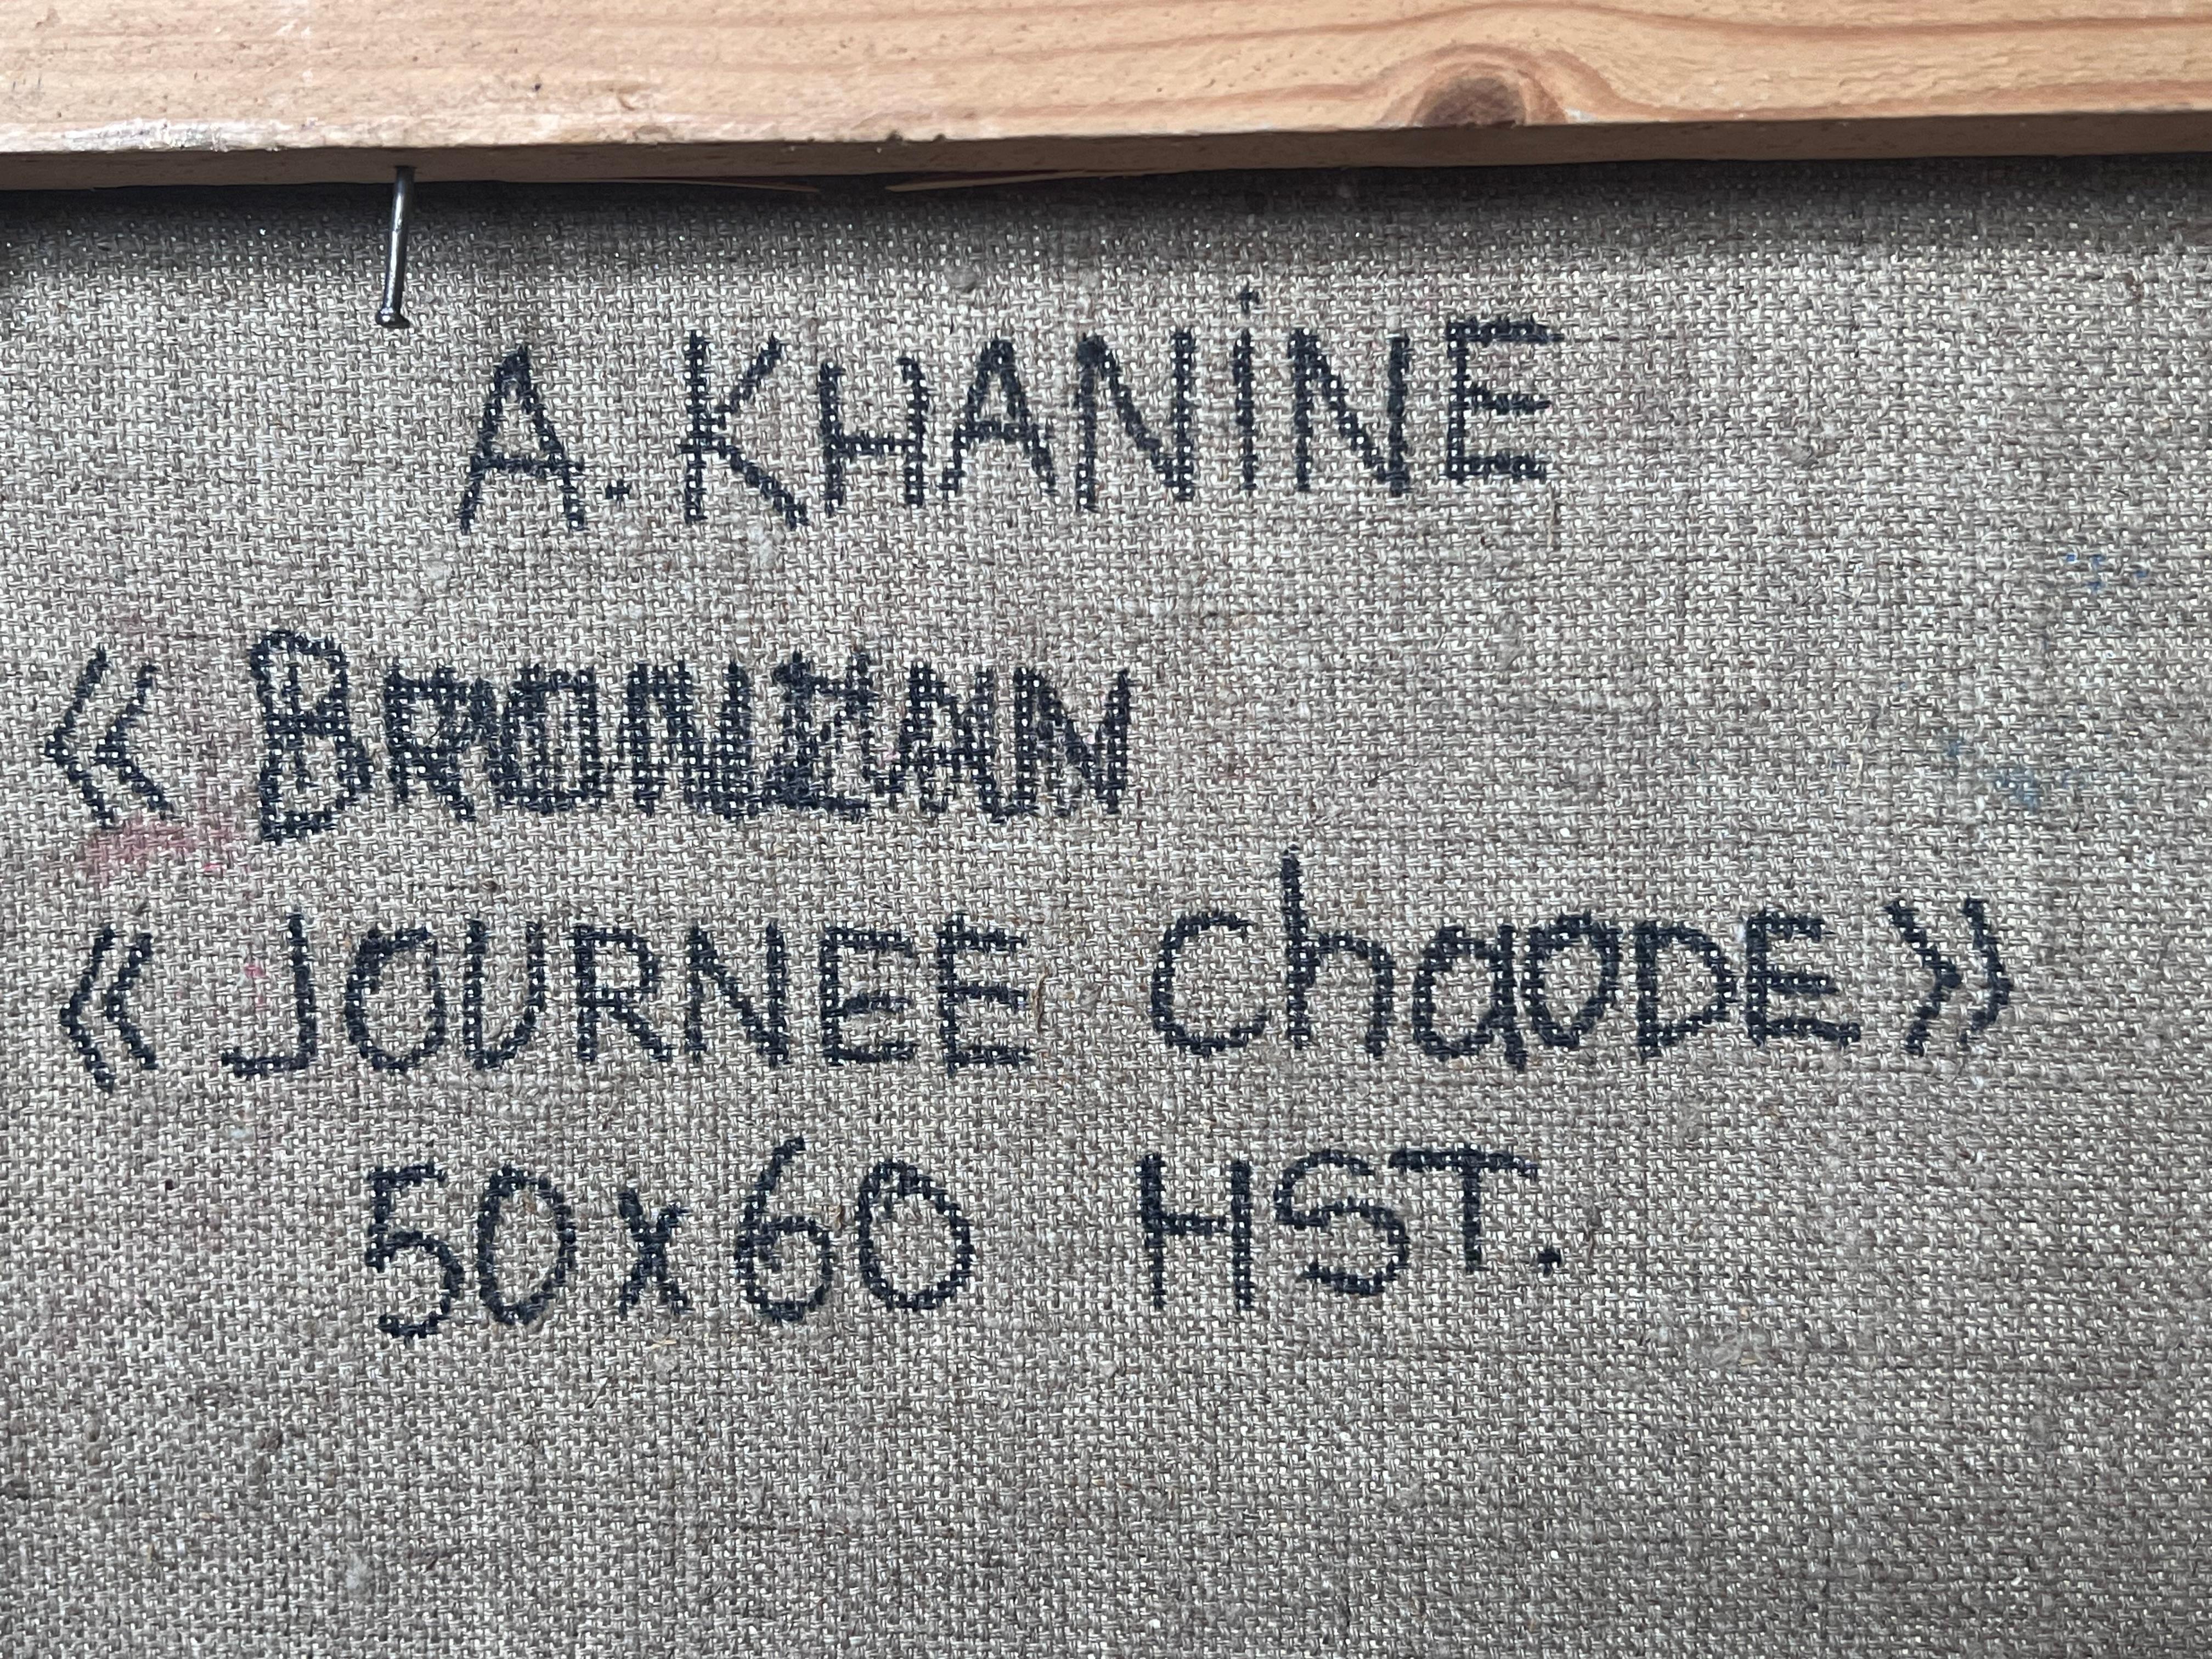 A. KHANiNE
«
« JOURNEE chaoDE »
50x60 HST.